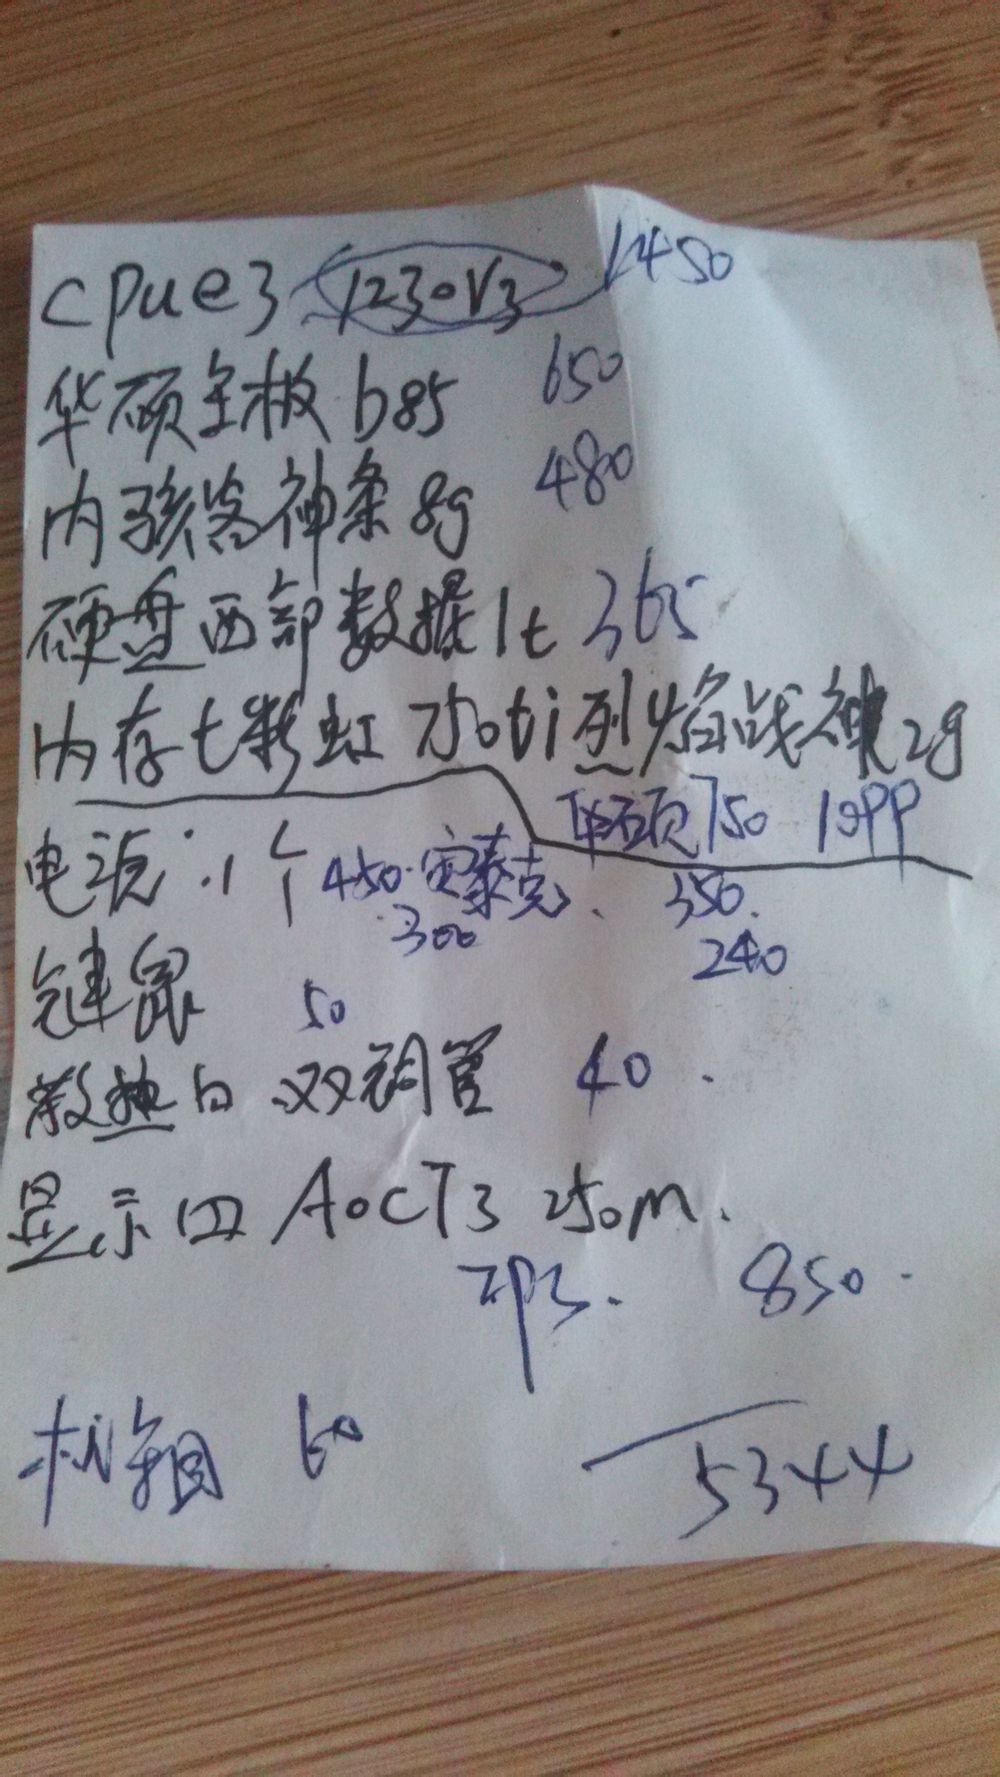 cpue3 1230V3 1450
华硕主板 b85 650
内骇客神条 8g 480
硬盘西部数据1t 365
内存七彩虹 750ti烈焰战神2g
华硕750 10PP
电源:1个 450.安泰克. 350.
300 240
键鼠 50
散热白 双铜管 40.
显示四 AOCT3 250m.
IPS. 850.
机箱 60
5344